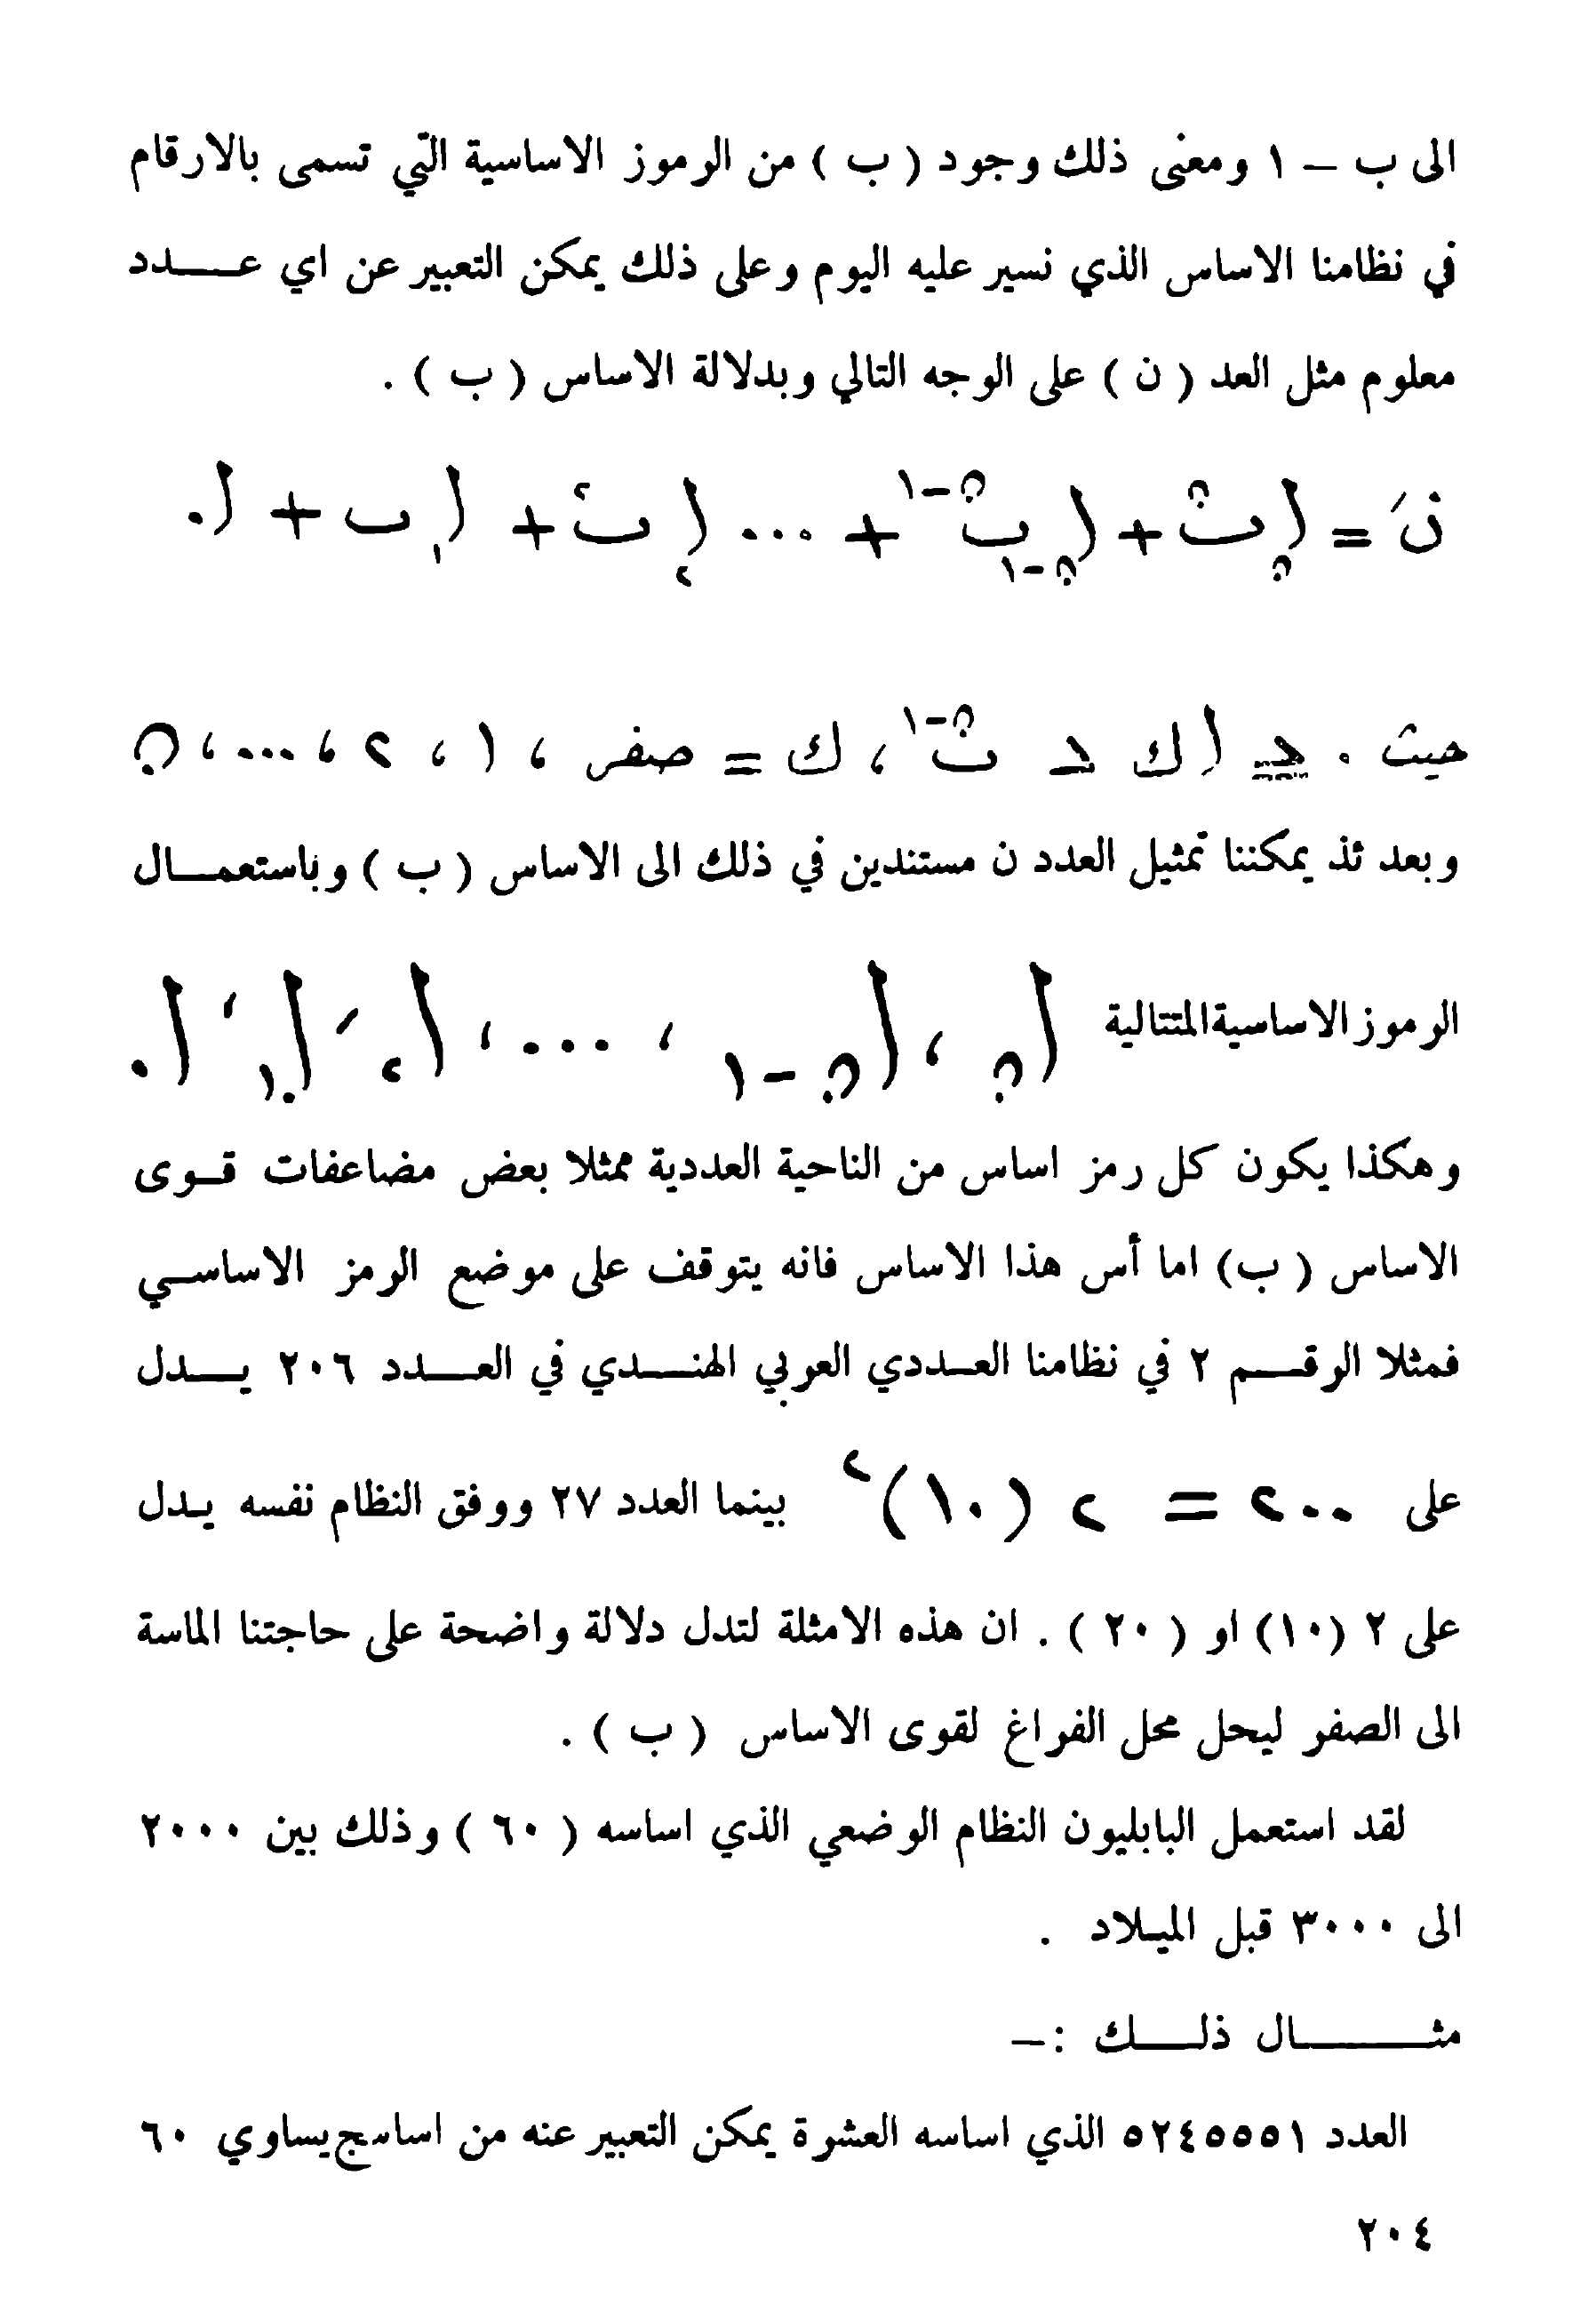 الى ب – ١ ومعنى ذلك وجود ( ب ) من الرموز الاساسية التي تسمى بالارقام
في نظامنا الاساس الذي نسير عليه اليوم وعلى ذلك يمكن التعبير عن اي عـــدد
معلوم مثل العد ( ن ) على الوجه التالي وبدلالة الاساس ( ب ) .
نَ = ا<sub>ن</sub> ب<sup>ن</sup> + ا<sub>ن-١</sub> ب<sup>ن-١</sup> + ... ا<sub>٢</sub> ب<sup>٢</sup> + ا<sub>١</sub> ب + ا<sub>٠</sub>
حيث ٠ ≤ ا ك < ب<sup>ن-١</sup> ، ك = صفر ، ١ ، ٢ ، ... ، ن
وبعد ئذ يمكننا تمثيل العدد ن مستندين في ذلك الى الاساس ( ب ) وباستعمـال
الرموز الاساسية المتتالية ا<sub>ن</sub> ، ا<sub>ن-١</sub> ، ... ، ا<sub>٢</sub> ، ا<sub>١</sub> ، ا<sub>٠</sub>
وهكذا يكون كل رمز اساس من الناحية العددية ممثلا بعض مضاعفات قـوى
الاساس ( ب) اما أس هذا الاساس فانه يتوقف على موضع الرمز الاساسـي
فمثلا الرقـــم ٢ في نظامنا العـددي العربي الهنــدي في العــدد ٢٠٦ يــدل
على ٢٠٠ = ٢ (١٠)<sup>٢</sup> بينما العدد ٢٧ ووفق النظام نفسه يـدل
على ٢ (١٠) او ( ٢٠ ) . ان هذه الامثلة لتدل دلالة واضحة على حاجتنا الماسة
الى الصفر ليحل محل الفراغ لقوى الاساس ( ب ) .
لقد استعمل البابليون النظام الوضعي الذي اساسه ( ٦٠ ) وذلك بين ٢٠٠٠
الى ٣٠٠٠ قبل الميـلاد .
مثـــــال ذلــك :–
العدد ٥٢٤٥٥٥١ الذي اساسه العشرة يمكن التعبير عنه من يساوي ٦٠
٢٠٤